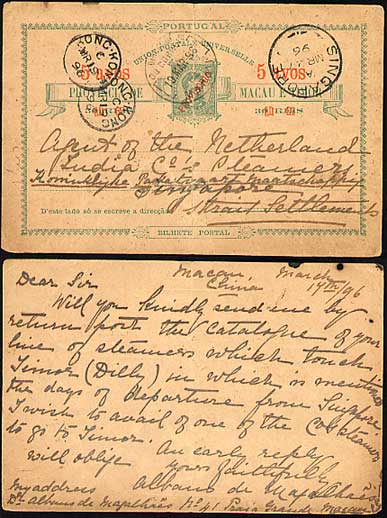 PORTUGAL
UNION POSTALE UNIVERSELLE
5 avos 5 avos
MACAU
30 RÉIS
HONG-KONG
SINGAPORE
MR
96
Agent of the Netherland
India Co's Steamers
Koninklijke Paketvaart Maatschappij
Singapore
Strait Settlements
D'este lado só se escreve a direcção
BILHETE POSTAL
Macau, March
China 17th/96
Dear Sir
Will you kindly send me by
return post the Catalogue of your
line of steamers which touch
Timor (Dilly) in which is mentioned
the days of departure from Singapore
I wish to avail of one of the Co's steamers
to go to Timor.
An early reply
will oblige yours faithfully
Albano de Magalhães
My address
Dr Albano de Magalhães No 41 Praia Grande Macau